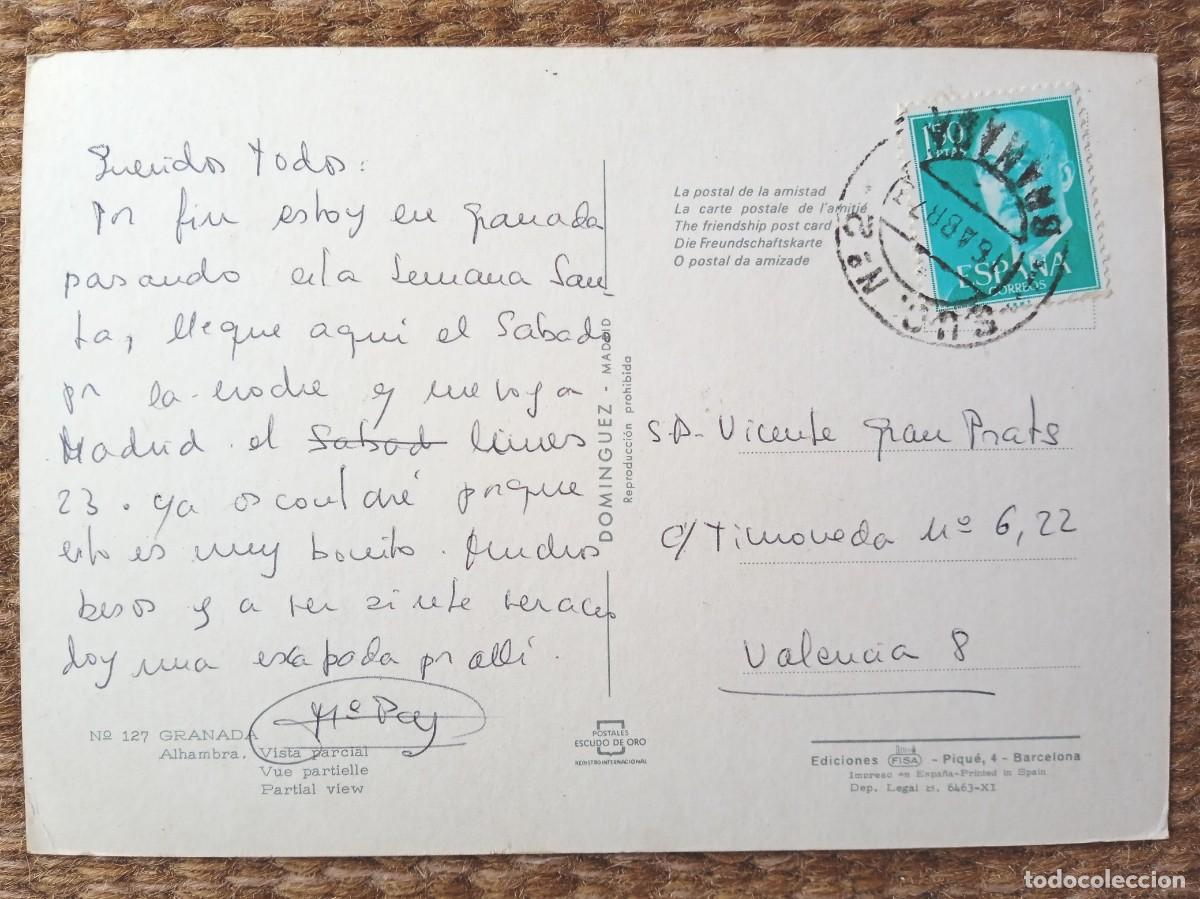 Queridos todos:
Por fin estoy en Granada
pasando esta Semana San-
ta, llegue aqui el Sabado
por la noche y me voy a
Madrid el Sabad lunes
23. Ya os contaré porque
esto es muy bonito. Muchos
besos y a ver si este verano
doy una escapada por allí.
Mª Paz
Nº 127 GRANADA
Alhambra. Vista parcial
Vue partielle
Partial view
DOMINGUEZ - MADRID
Reproducción prohibida
POSTALES
ESCUDO DE ORO
REGISTRO INTERNACIONAL
La postal de la amistad
La carte postale de l'amitié
The friendship post card
Die Freundschaftskarte
O postal da amizade
1'50
PTAS
ESPAÑA
CORREOS
GRANADA
16 ABR 73
SUC. Nº 2
Vicente Gran Prats
c/ Timoneda nº 6, 22
Valencia 8
Ediciones FISA - Piqué, 4 - Barcelona
Impreso en España-Printed in Spain
Dep. Legal B. 6463-XI
todocoleccion